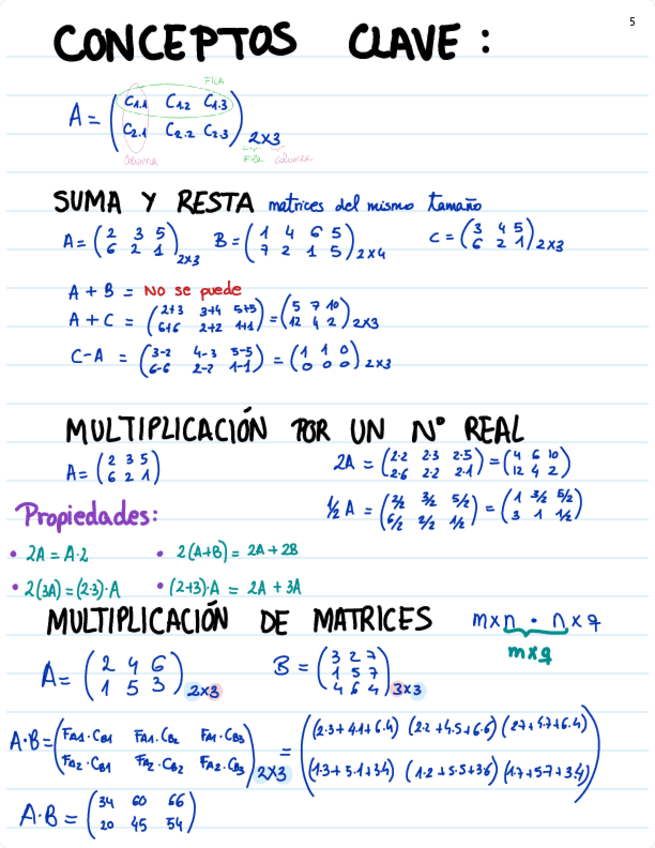 5
CONCEPTOS CLAVE :
FILA
A = ( C1.1 C1.2 C1.3
C2.1 C2.2 C2.3 ) 2x3
Columna Fila columna
SUMA Y RESTA matrices del mismo tamaño
A = ( 2 3 5
6 2 1 ) 2x3
B = ( 1 4 6 5
7 2 1 5 ) 2x4
C = ( 3 4 5
6 2 1 ) 2x3
A + B = No se puede
A + C = ( 2+3 3+4 5+5
6+6 2+2 1+1 ) = ( 5 7 10
12 4 2 ) 2x3
C-A = ( 3-2 4-3 5-5
6-6 2-2 1-1 ) = ( 1 1 0
0 0 0 ) 2x3
MULTIPLICACIÓN POR UN Nº REAL
A = ( 2 3 5
6 2 1 )
2A = ( 2·2 2·3 2·5
2·6 2·2 2·1 ) = ( 4 6 10
12 4 2 )
½ A = ( 2/2 3/2 5/2
6/2 2/2 1/2 ) = ( 1 3/2 5/2
3 1 1/2 )
Propiedades:
• 2A = A·2 • 2(A+B) = 2A + 2B
• 2(3A) = (2·3)·A • (2+3)·A = 2A + 3A
MULTIPLICACIÓN DE MATRICES m x n · n x q
m x q
A = ( 2 4 6
1 5 3 ) 2x3
B = ( 3 2 7
1 5 7
4 6 4 ) 3x3
A·B = ( FA1·CB1 FA1·CB2 FA1·CB3
FA2·CB1 FA2·CB2 FA2·CB3 ) 2x3
= ( (2·3+4·1+6·4) (2·2+4·5+6·6) (2·7+4·7+6·4)
(1·3+5·1+3·4) (1·2+5·5+3·6) (1·7+5·7+3·4) )
A·B = ( 34 60 66
20 45 54 )